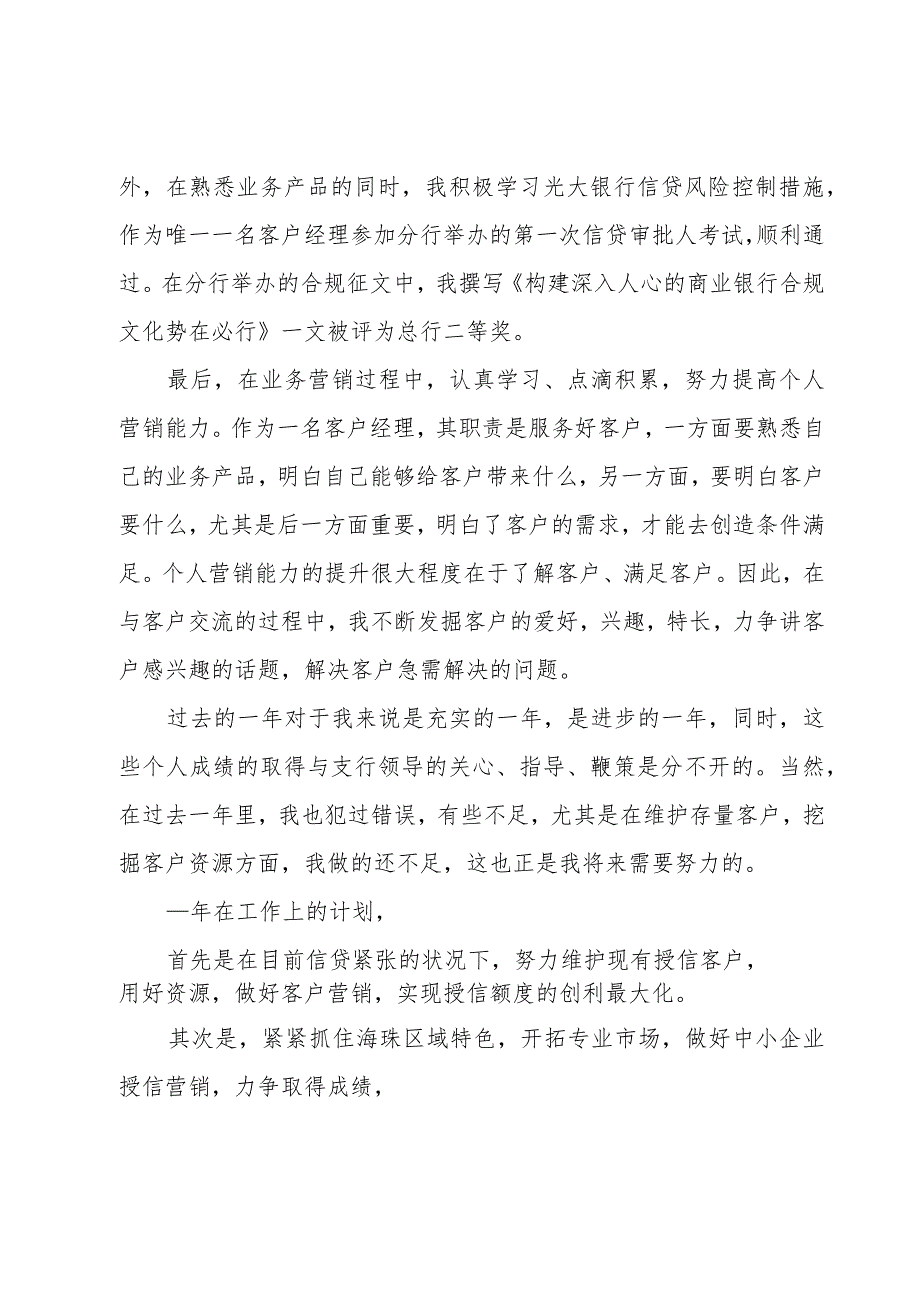 外，在熟悉业务产品的同时，我积极学习光大银行信贷风险控制措施，
作为唯一一名客户经理参加分行举办的第一次信贷审批人考试，顺利通
过。在分行举办的合规征文中，我撰写《构建深入人心的商业银行合规
文化势在必行》一文被评为总行二等奖。
最后，在业务营销过程中，认真学习、点滴积累，努力提高个人
营销能力。作为一名客户经理，其职责是服务好客户，一方面要熟悉自
己的业务产品，明白自己能够给客户带来什么，另一方面，要明白客户
要什么，尤其是后一方面重要，明白了客户的需求，才能去创造条件满
足。个人营销能力的提升很大程度在于了解客户、满足客户。因此，在
与客户交流的过程中，我不断发掘客户的爱好，兴趣，特长，力争讲客
户感兴趣的话题，解决客户急需解决的问题。
过去的一年对于我来说是充实的一年，是进步的一年，同时，这
些个人成绩的取得与支行领导的关心、指导、鞭策是分不开的。当然，
在过去一年里，我也犯过错误，有些不足，尤其是在维护存量客户，挖
掘客户资源方面，我做的还不足，这也正是我将来需要努力的。
—年在工作上的计划，
首先是在目前信贷紧张的状况下，努力维护现有授信客户，
用好资源，做好客户营销，实现授信额度的创利最大化。
其次是，紧紧抓住海珠区域特色，开拓专业市场，做好中小企业
授信营销，力争取得成绩，